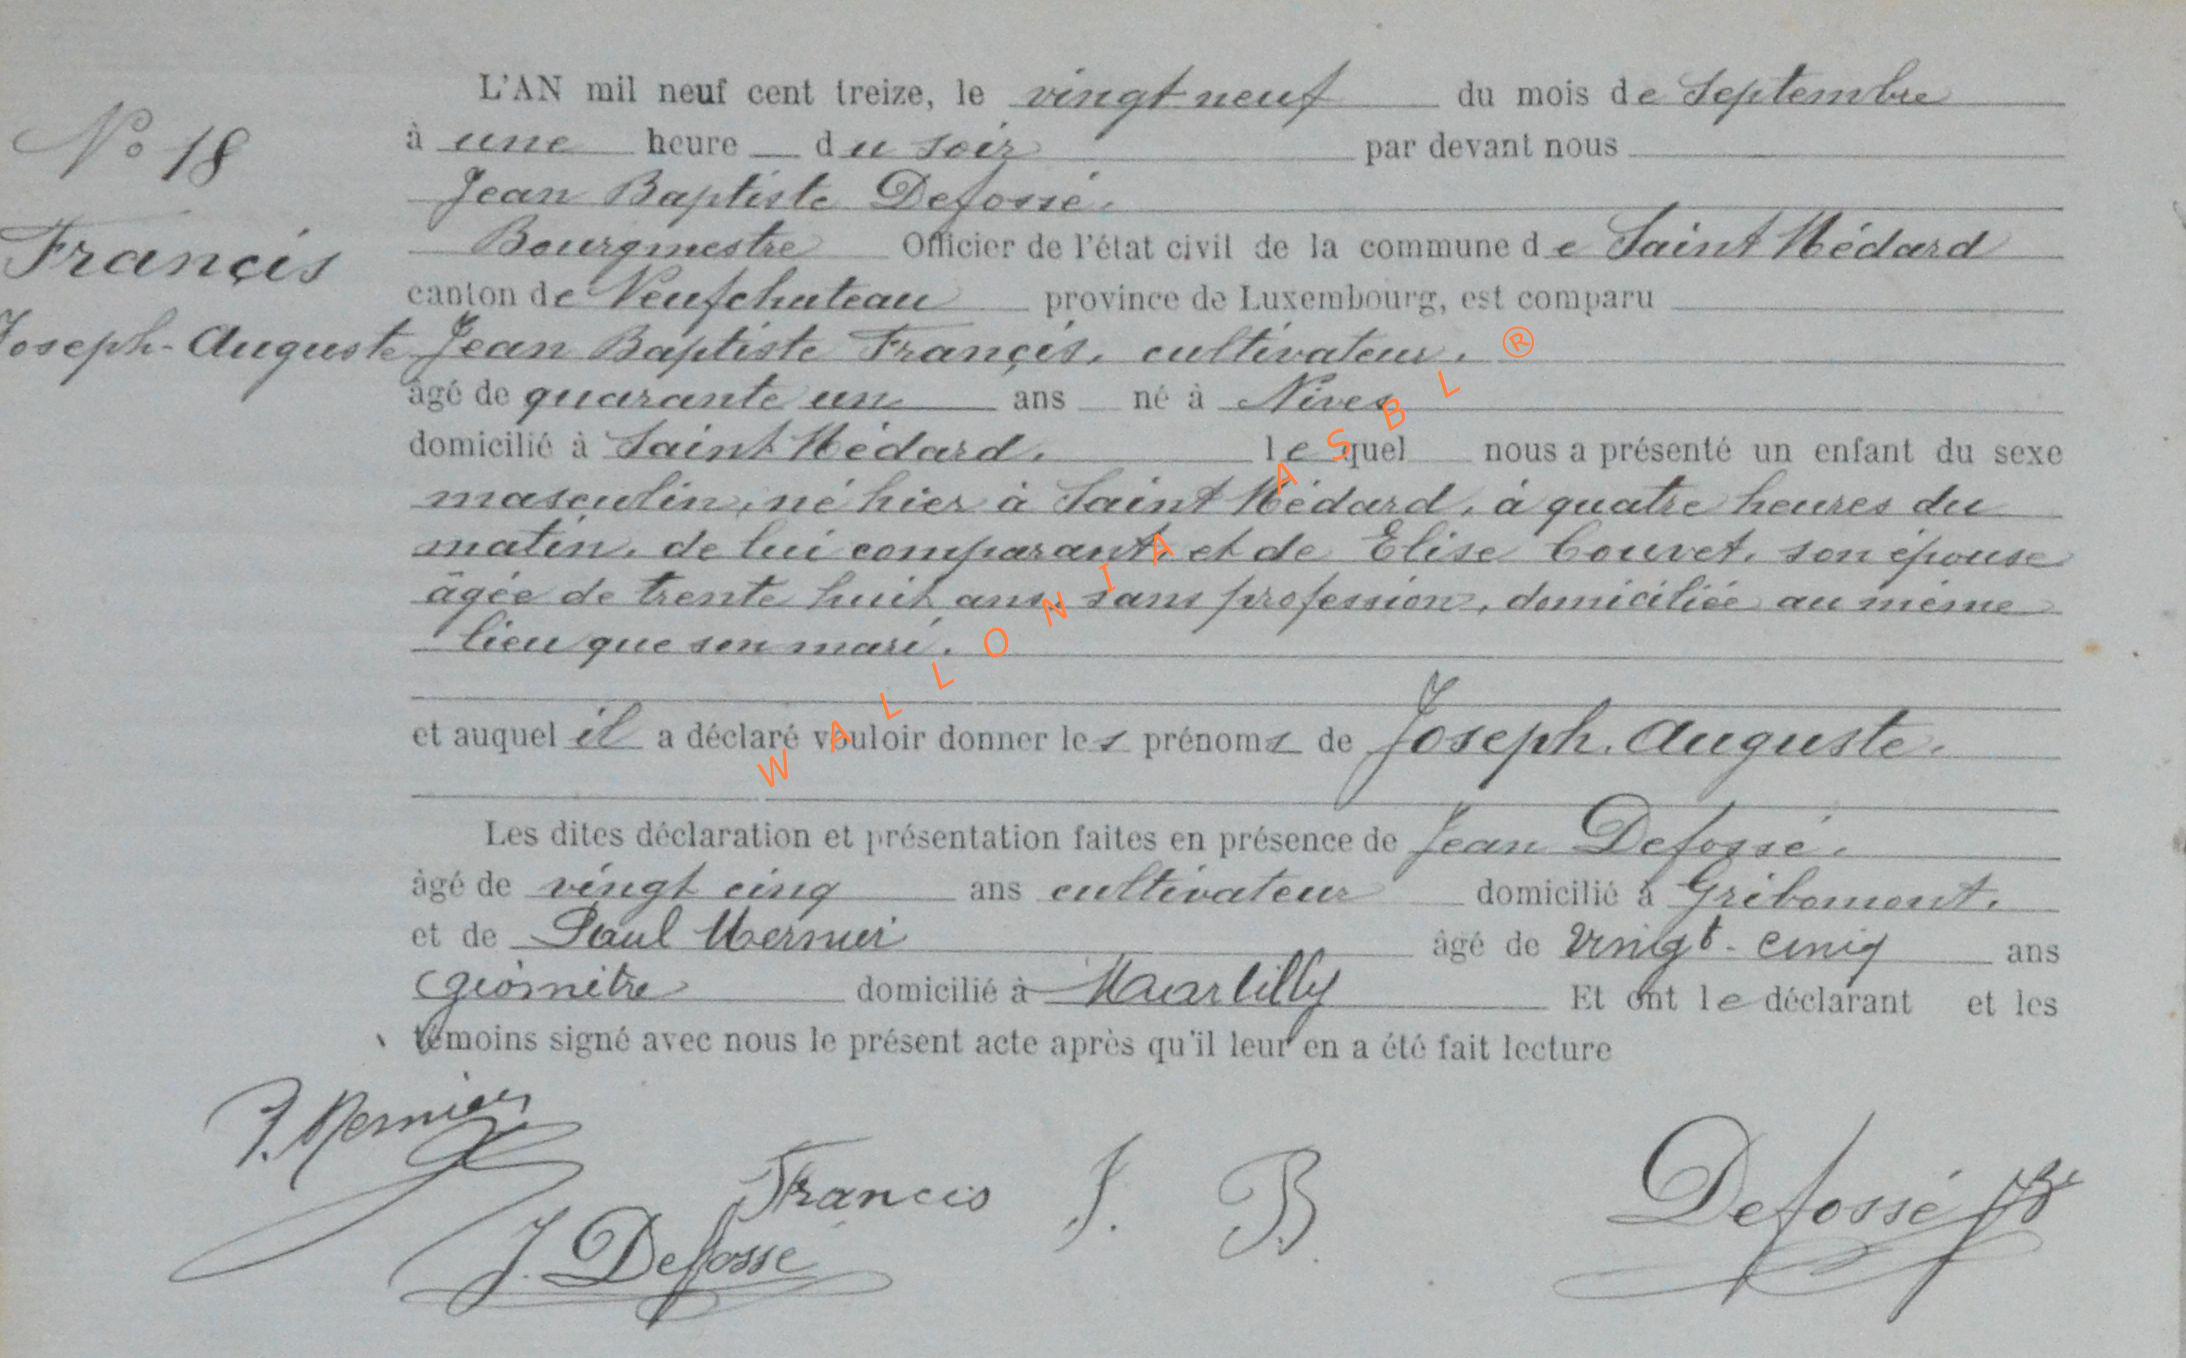 N° 18
Françis
Joseph-Auguste
L'AN mil neuf cent treize, le vingt neuf du mois de Septembre
à une heure du soir par devant nous
Jean Baptiste Defossé.
Bourgmestre Officier de l'état civil de la commune de Saint Médard
canton de Neufchateau province de Luxembourg, est comparu
Jean Baptiste Françis, cultivateur.
âgé de quarante un ans né à Nives
domicilié à Saint Médard. lequel nous a présenté un enfant du sexe
masculin, né hier à Saint Médard, à quatre heures du
matin, de lui comparant, et de Elise Couvet, son épouse
âgée de trente huit ans, sans profession, domiciliée au même
lieu que son mari.
et auquel il a déclaré vouloir donner les prénoms de Joseph. Auguste.
Les dites déclaration et présentation faites en présence de Jean Defossé.
âgé de vingt cinq ans cultivateur domicilié à Gribomont.
et de Paul Mernier âgé de vingt-cinq ans
géomètre domicilié à Martilly Et ont le déclarant et les
témoins signé avec nous le présent acte après qu'il leur en a été fait lecture
P. Mernier
Francis J. B.
J. Defossé
Defossé JB
WALLONIA ASBL ®